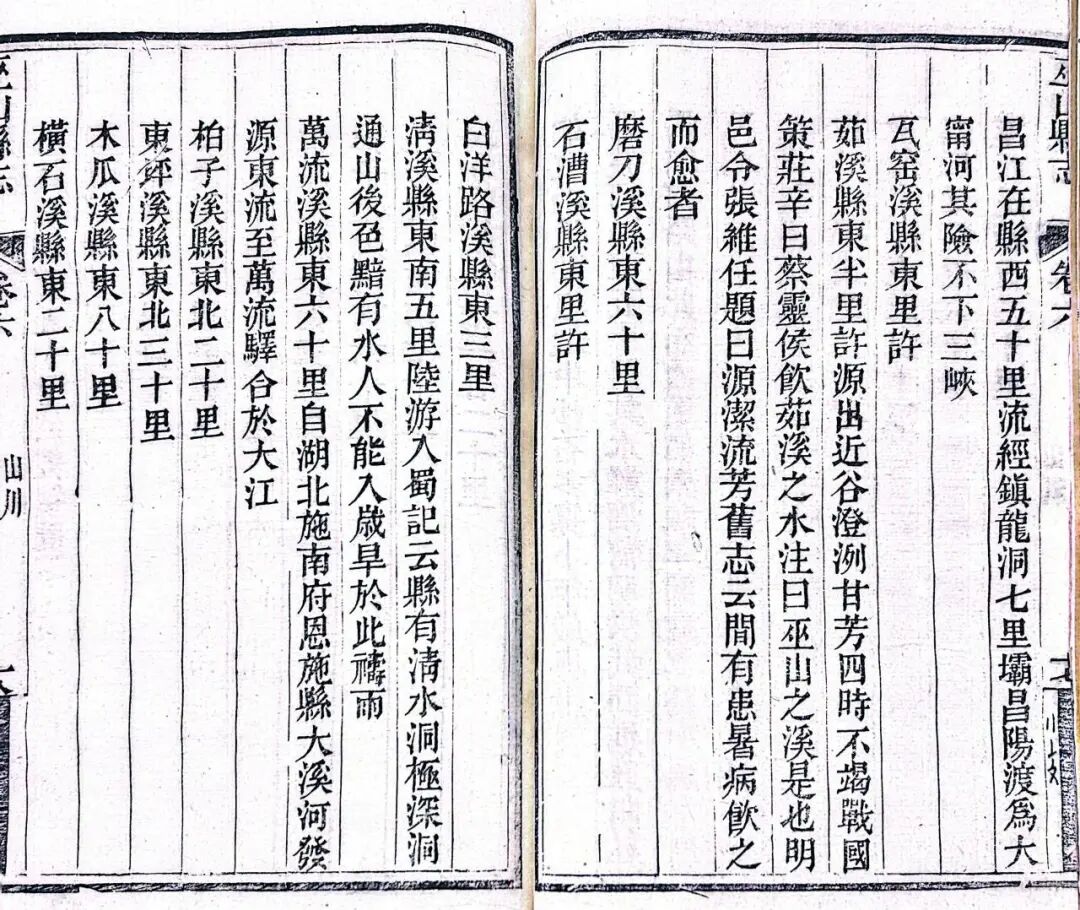 巫山縣志
卷六
昌江在縣西五十里流經鎮龍洞七里壩昌陽渡爲大
甯河其險不下三峽
瓦窑溪縣東里許
茹溪縣東半里許源出近谷澄洌甘芳四時不竭戰國
策莊辛曰蔡靈侯飲茹溪之水注曰巫山之溪是也明
邑令張維任題曰源潔流芳舊志云間有患暑病飲之
而愈者
磨刀溪縣東六十里
石漕溪縣東里許
白洋路溪縣東三里
清溪縣東南五里陸游入蜀記云縣有清水洞極深洞
通山後色黯有水人不能入歲旱於此禱雨
萬流溪縣東六十里自湖北施南府恩施縣大溪河發
源東流至萬流驛合於大江
柏子溪縣東北二十里
東坪溪縣東北三十里
木瓜溪縣東八十里
橫石溪縣東二十里
巫山縣志
卷六
山川